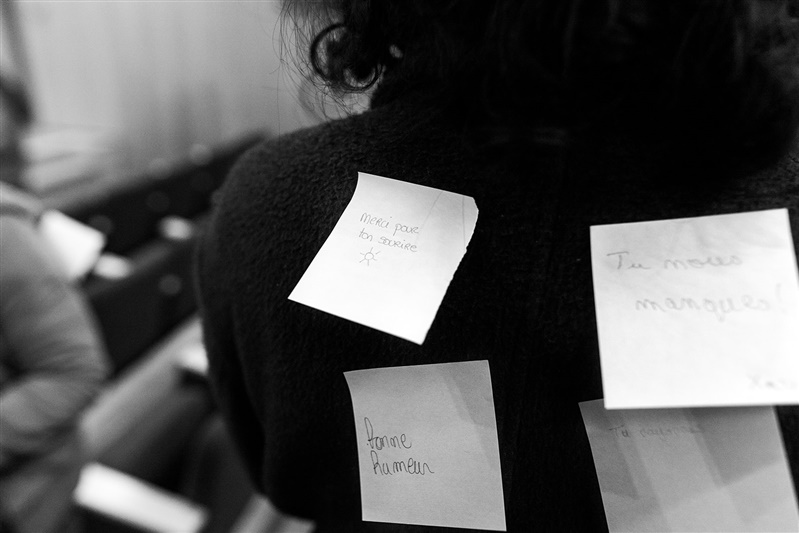 Merci pour
ton sourire
Tu nous
manques!
bonne
humeur